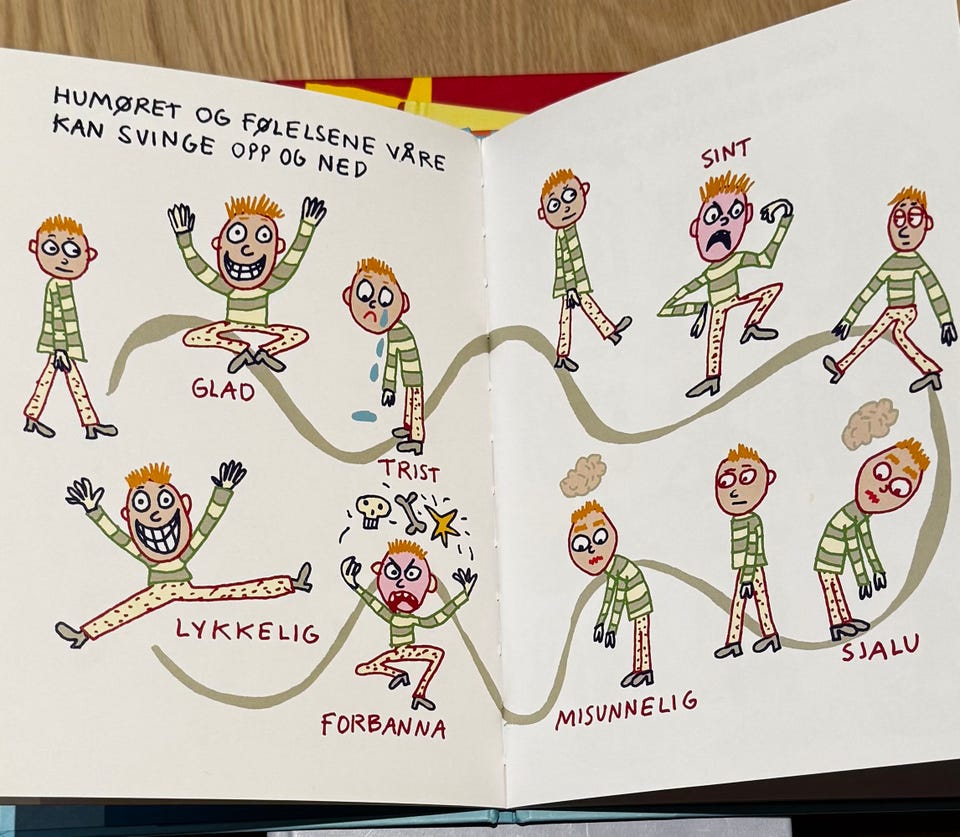 HUMØRET OG FØLELSENE VÅRE
KAN SVINGE OPP OG NED
GLAD
TRIST
SINT
LYKKELIG
FORBANNA
MISUNNELIG
SJALU